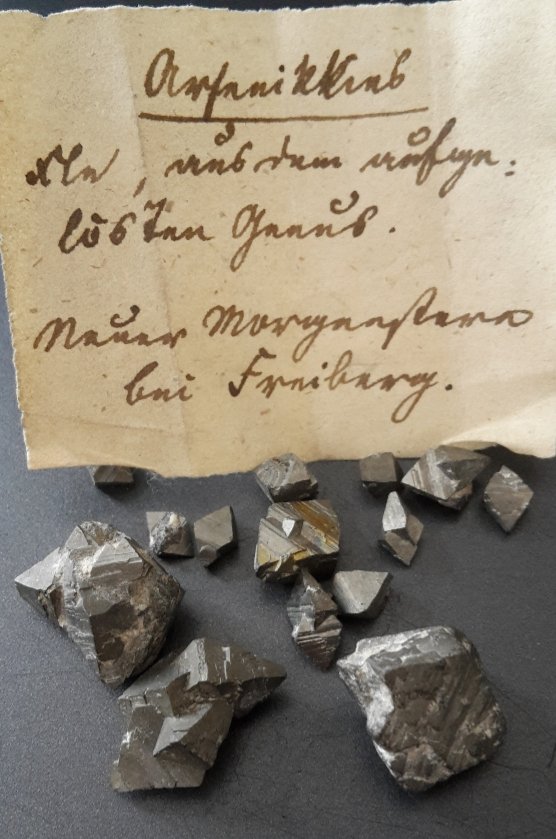 Arsenikkies
Xle, aus dem aufge:
lösten Gneus.
Neuer Morgenstern
bei Freiberg.